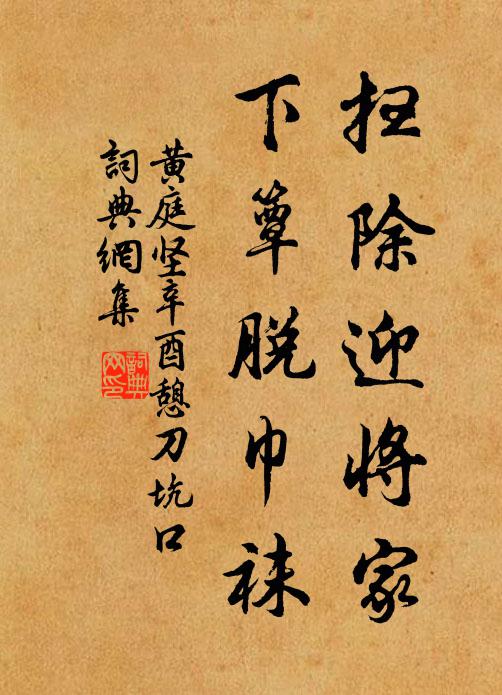 扫除迎将家
下簟脱巾袜
黄庭坚辛酉憩刀坑口
詞典網集
詞典网印